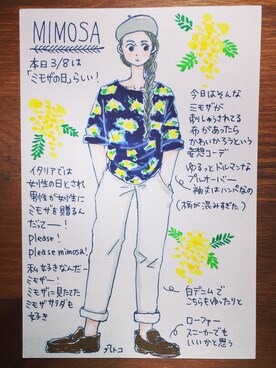 MIMOSA
本日3/8は
「ミモザの日」らしい!
イタリアでは
女性の日とされ
男性が女性に
ミモザを贈るん
だってー!
please!
please mimosa!
私好きなんだー
ミモザー!
ミモザに見たてた
ミモザサラダも
好き
今日はそんな
ミモザが
刺しゅうされてる
布があったら
かわいかろうという
妄想コーデ
ゆるっとドルマンな
プルオーバー
袖丈はハンパなの
(柄が混みすぎた)
白デニムで
こちらもゆったりと
ローファー
スニーカーでも
いいかと思う